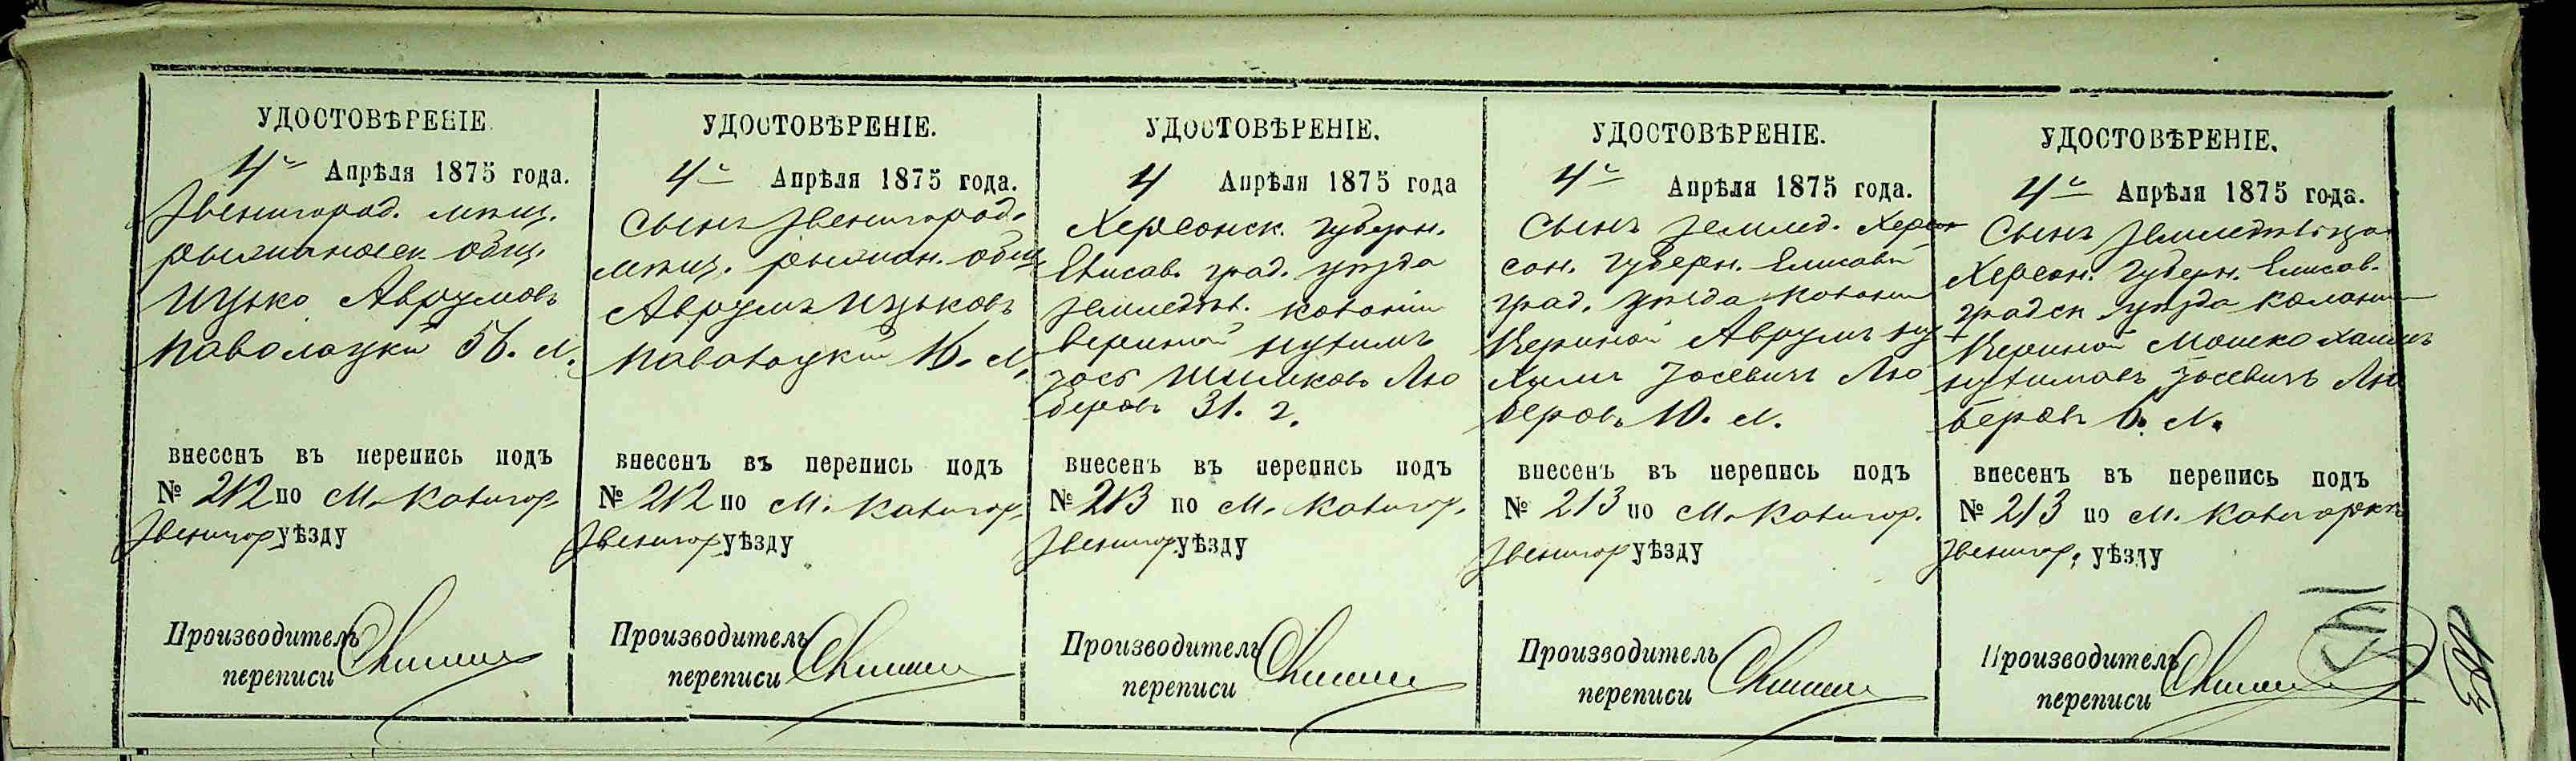 УДОСТОВѢРЕНІЕ
4го Апрѣля 1875 года.
Звенигород. мѣщ.
рыжановск. общ.
Ицько Аврумовъ
Паволоцкій 56. л.
внесенъ въ перепись подъ
№ 212 по М. Катигор.
Звенигор уѣзду
Производитель
переписи
УДОСТОВѢРЕНІЕ.
4го Апрѣля 1875 года.
Сынъ Звенигород.
мѣщ. рыжан. общ.
Аврумъ Ицьковъ
Паволоцкій 16. л.
внесенъ въ перепись подъ
№ 212 по М. Катигор.
Звенигор уѣзду
Производитель
переписи
УДОСТОВѢРЕНІЕ.
4 Апрѣля 1875 года
Херсонск. губерн.
Елисав. град. уѣзда
землед. колоніи
нухимъ
Іось Шмилковъ Лю
беровъ 31. г.
внесенъ въ перепись подъ
№ 213 по М. Катигор.
Звенигор. уѣзду
Производитель
переписи
УДОСТОВѢРЕНІЕ.
4го Апрѣля 1875 года.
Сынъ землед. Херсон
сон. губерн. Елисавет
град. уѣзда колоніи
Аврумъ ну
химъ Іосевичъ Лю
беровъ 10. л.
внесенъ въ перепись подъ
№ 213 по М. Катигор.
Звенигор уѣзду
Производитель
переписи
УДОСТОВѢРЕНІЕ.
4го Апрѣля 1875 года.
Сынъ земледѣльца
Херсон. губерн. Елисав.
градск уѣзда колоніи
Мошко Хаимъ
нухимовъ Іосевичъ Лю
беровъ 6. л.
внесенъ въ перепись подъ
№ 213 по М. Катигоркѣ
Звенигор. уѣзду
Производитель
переписи